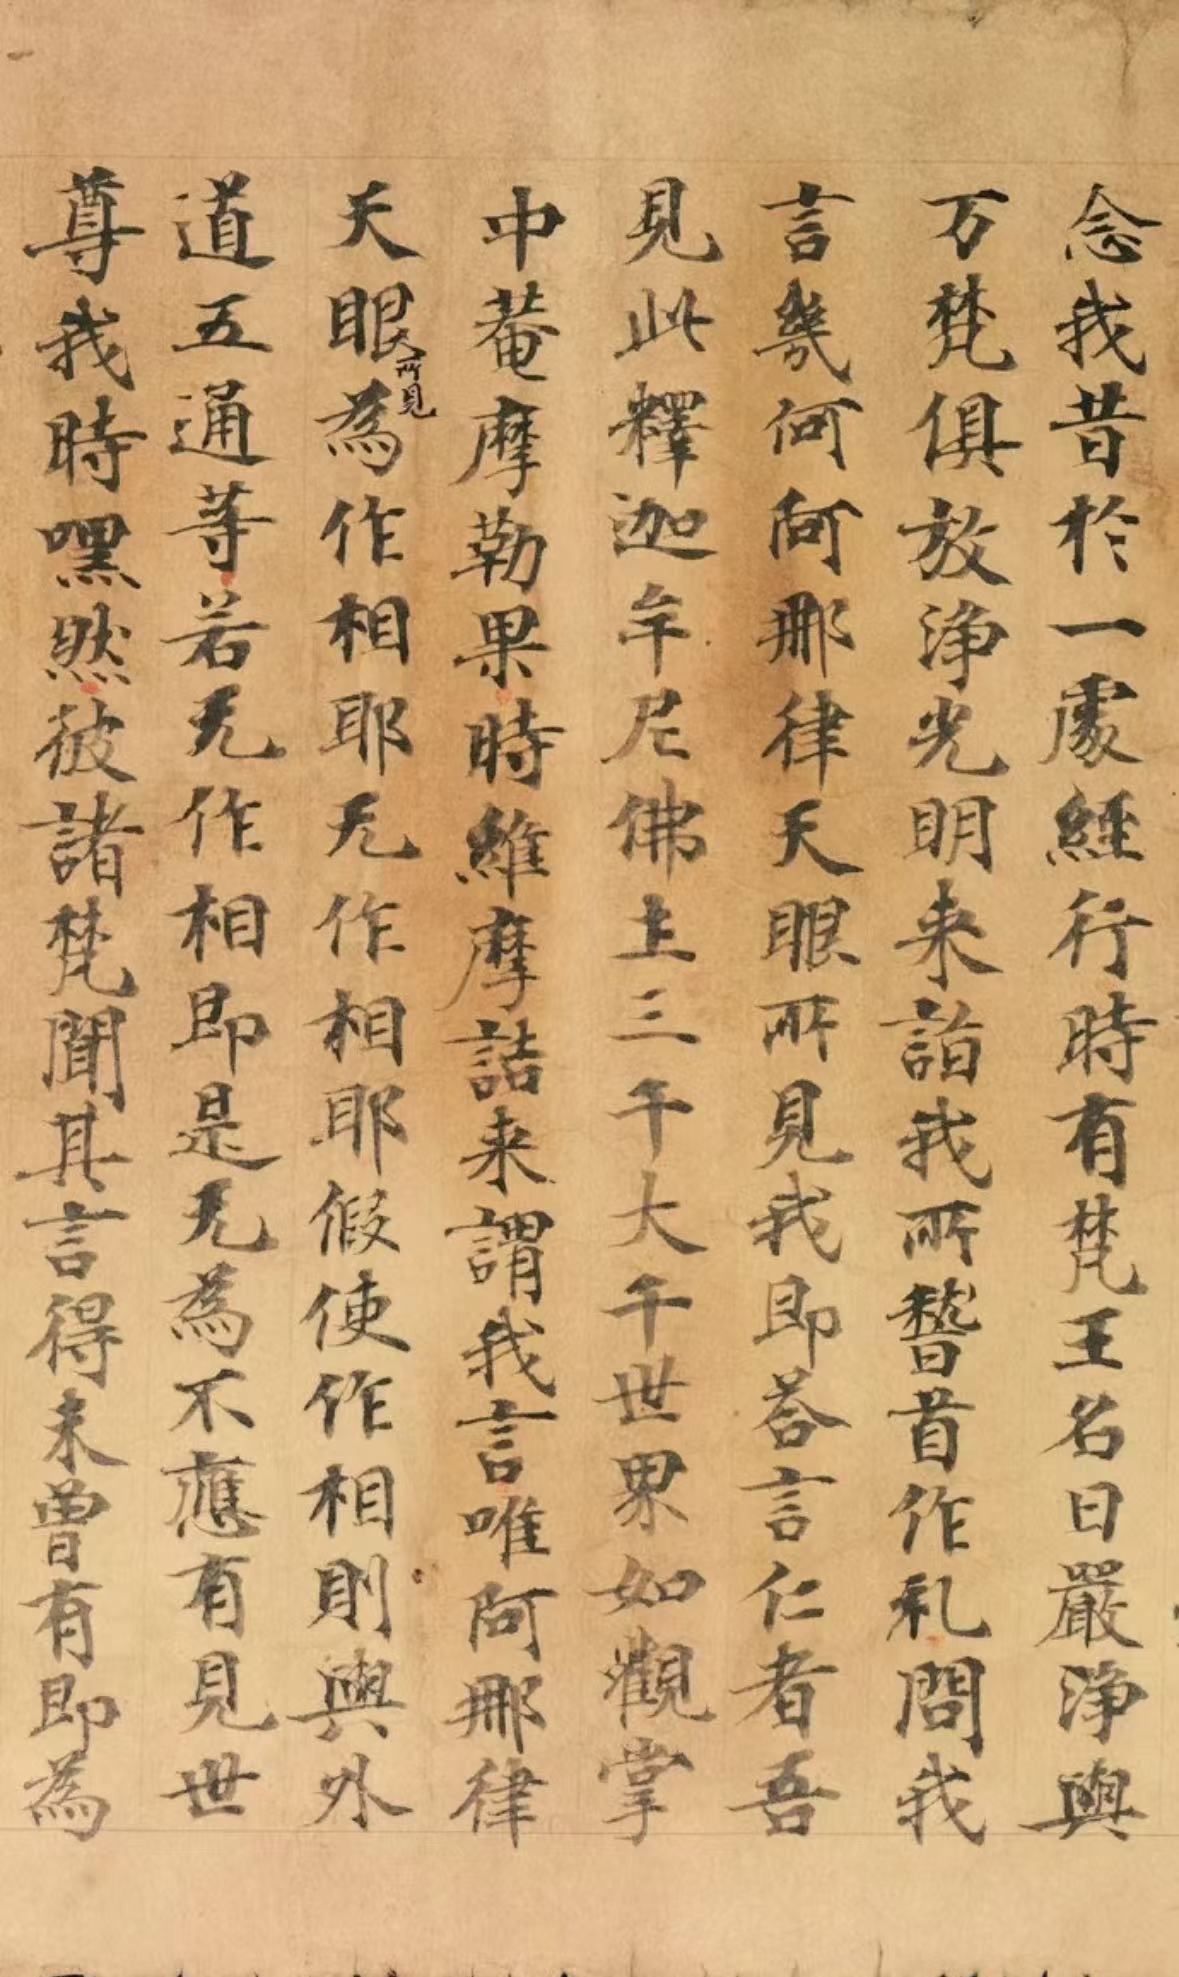 念我昔於一處經行時有梵王名曰嚴淨與
万梵俱放淨光明来詣我所稽首作礼問我
言幾何阿那律天眼所見我即荅言仁者吾
見此釋迦牟尼佛土三千大千世界如觀掌
中菴摩勒果時維摩詰来謂我言唯阿那律
天眼天所見為作相耶无作相耶假使作相則與外
道五通等若无作相即是无為不應有見世
尊我時嘿然彼諸梵聞其言得未曾有即為